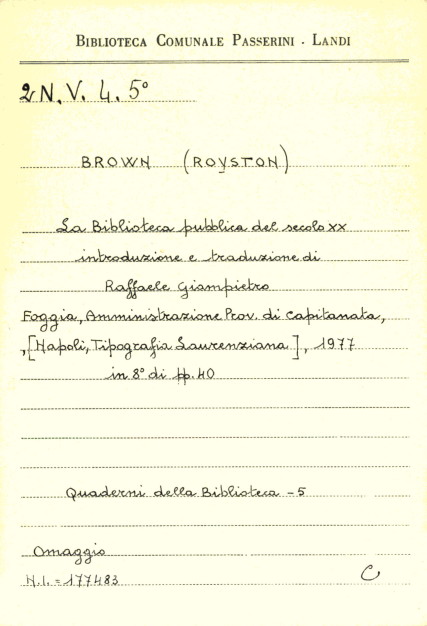 BIBLIOTECA COMUNALE PASSERINI - LANDI
2N.V. 4. 5°
BROWN (ROYSTON)
La Biblioteca pubblica del secolo XX
introduzione e traduzione di
Raffaele Giampietro
Foggia, Amministrazione Prov. di Capitanata,
,[Napoli, Tipografia Laurenziana], 1977
in 8° di pp. 40
Quaderni della Biblioteca - 5
Omaggio
N.I. = 177483
C